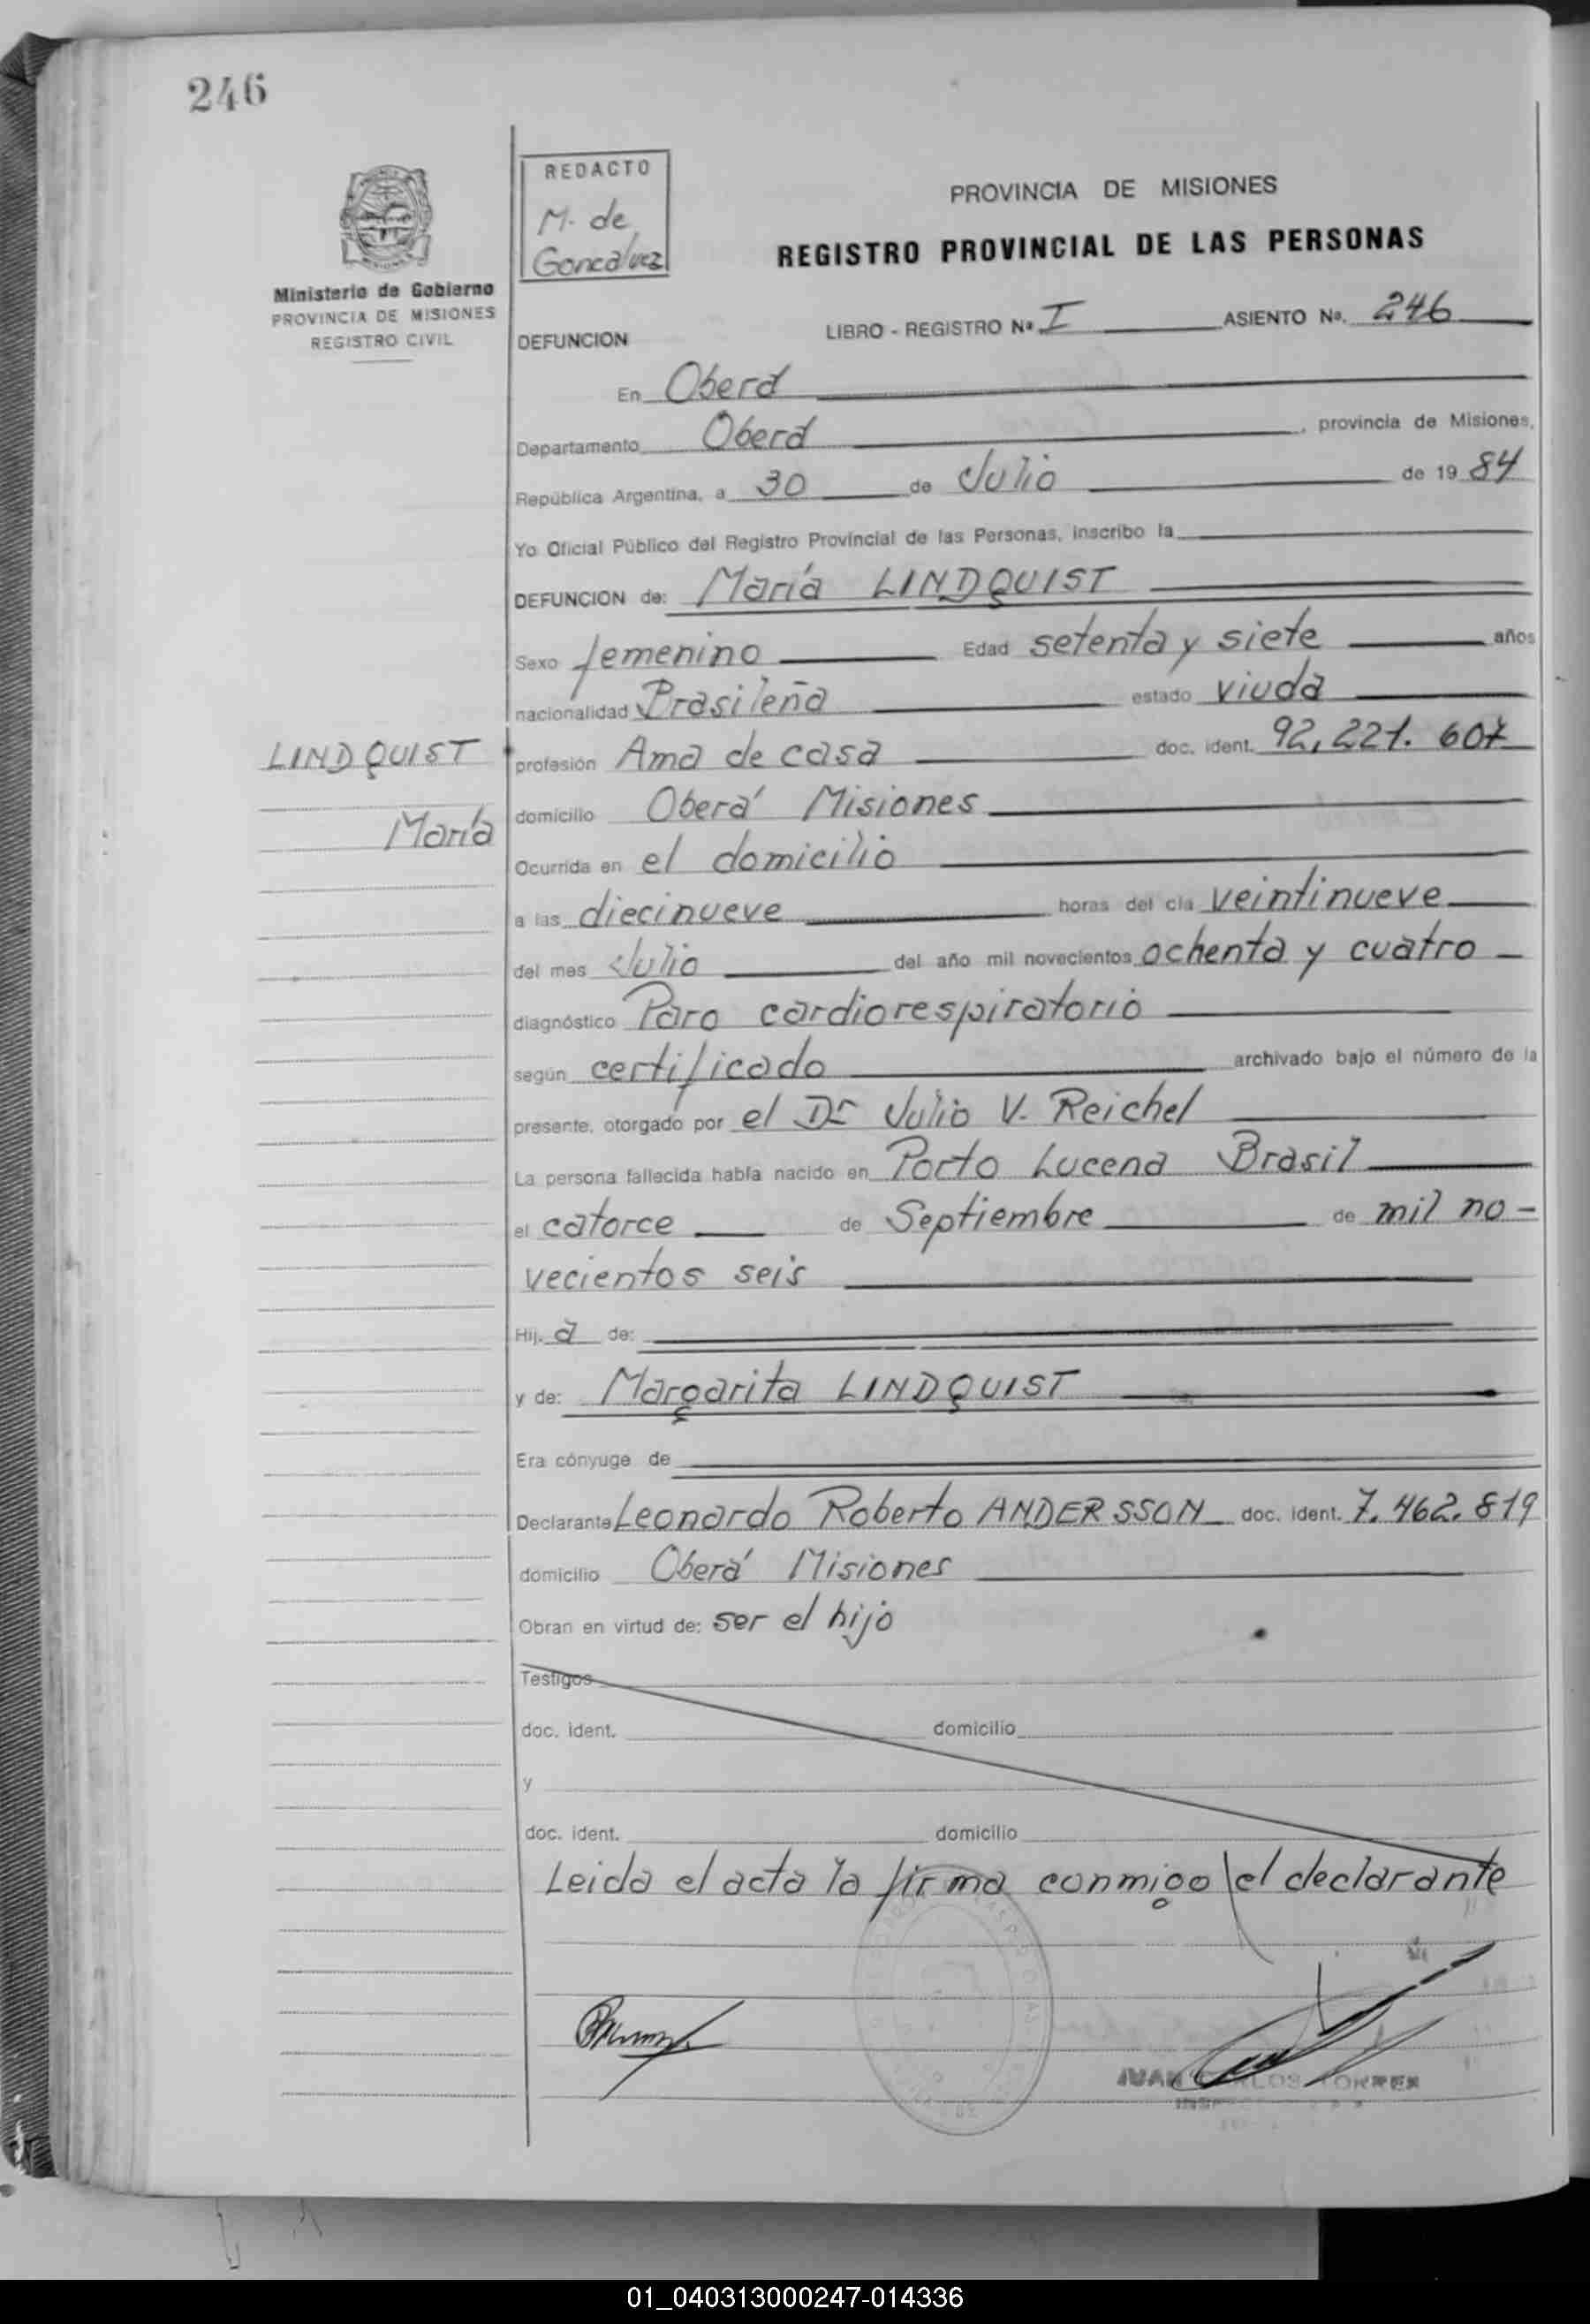 246
REDACTO
M. de
Goncalvez
Ministerio de Gobierno
PROVINCIA DE MISIONES
REGISTRO CIVIL
PROVINCIA DE MISIONES
REGISTRO PROVINCIAL DE LAS PERSONAS
DEFUNCION LIBRO - REGISTRO Nº I ASIENTO Nº. 246
En Oberá
Departamento Oberá, provincia de Misiones,
República Argentina, a 30 de Julio de 19 84
Yo Oficial Público del Registro Provincial de las Personas, inscribo la
DEFUNCION de: María LINDQUIST
Sexo femenino Edad setenta y siete años
nacionalidad Brasileña estado viuda
LINDQUIST
María
profesión Ama de casa doc. ident. 92,221.607
domicilio Oberá Misiones
Ocurrida en el domicilio
a las diecinueve horas del día veintinueve
del mes Julio del año mil novecientos ochenta y cuatro
diagnóstico Paro cardiorespiratorio
según certificado archivado bajo el número de la
presente, otorgado por el Dr Julio V. Reichel
La persona fallecida había nacido en Porto Lucena Brasil
el catorce de Septiembre de mil no-
vecientos seis
Hij. a de:
y de: Margarita LINDQUIST
Era cónyuge de
Declarante Leonardo Roberto ANDERSSON doc. ident. 7.462.819
domicilio Oberá Misiones
Obran en virtud de: ser el hijo
Testigos
doc. ident. domicilio
y
doc. ident. domicilio
Leida el acta la firma conmigo el declarante
JUAN CARLOS TORRES
01_040313000247-014336